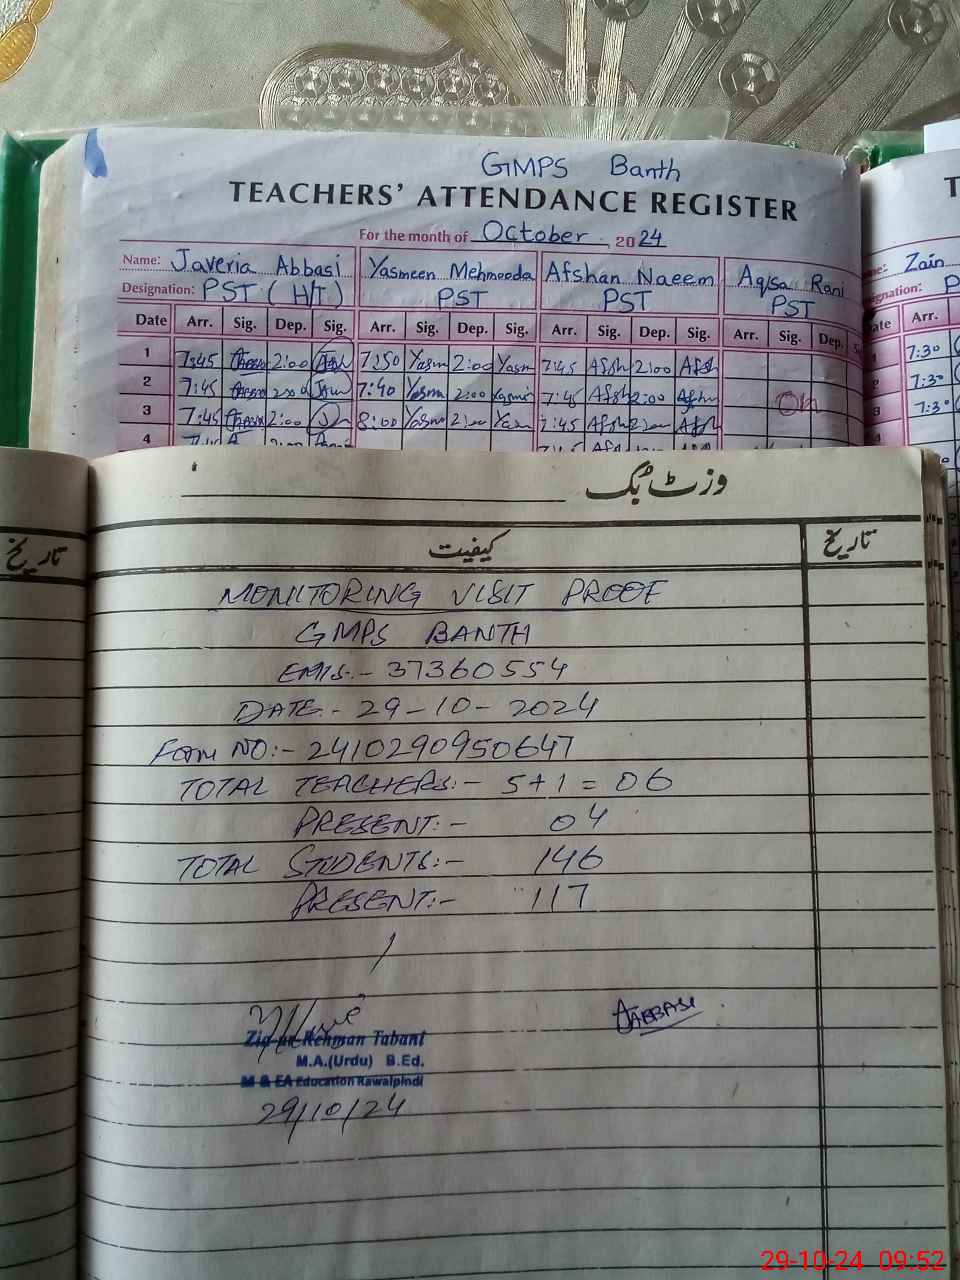 GMPS Banth
TEACHERS' ATTENDANCE REGISTER
For the month of October 2024
Name: Javeria Abbasi Yasmeen Mehmooda Afshan Naeem Aqsa Rani Zain
Designation: PST (H/T) PST PST PST
Date Arr. Sig. Dep. Sig. Arr. Sig. Dep. Sig. Arr. Sig. Dep. Sig. Arr. Sig. Dep. Arr.
1 7:45 2:00 7:50 Yasm 2:00 Yasm 7:45 Afsh 2:00 Afsh 7:30
2 7:45 2:00 7:40 Yasm 2:00 7:45 Afsh 2:00 7:30
3 7:45 2:00 8:00 Yasm 2:00 Yasm 7:45 Afsh 2:00 Afsh 7:30
4
وزٹ بُک
تاریخ کیفیت تاریخ
MONITORING VISIT PROOF
GMPS BANTH
EMIS:- 37360554
DATE:- 29-10-2024
FORM NO:- 2410290950647
TOTAL TEACHERS:- 5+1=06
PRESENT:- 04
TOTAL STUDENTS:- 146
PRESENT:- 117
JABBASI
Zia ur Rehman Tabani
M.A.(Urdu) B.Ed.
M & EA Education Rawalpindi
29/10/24
29-10-24 09:52